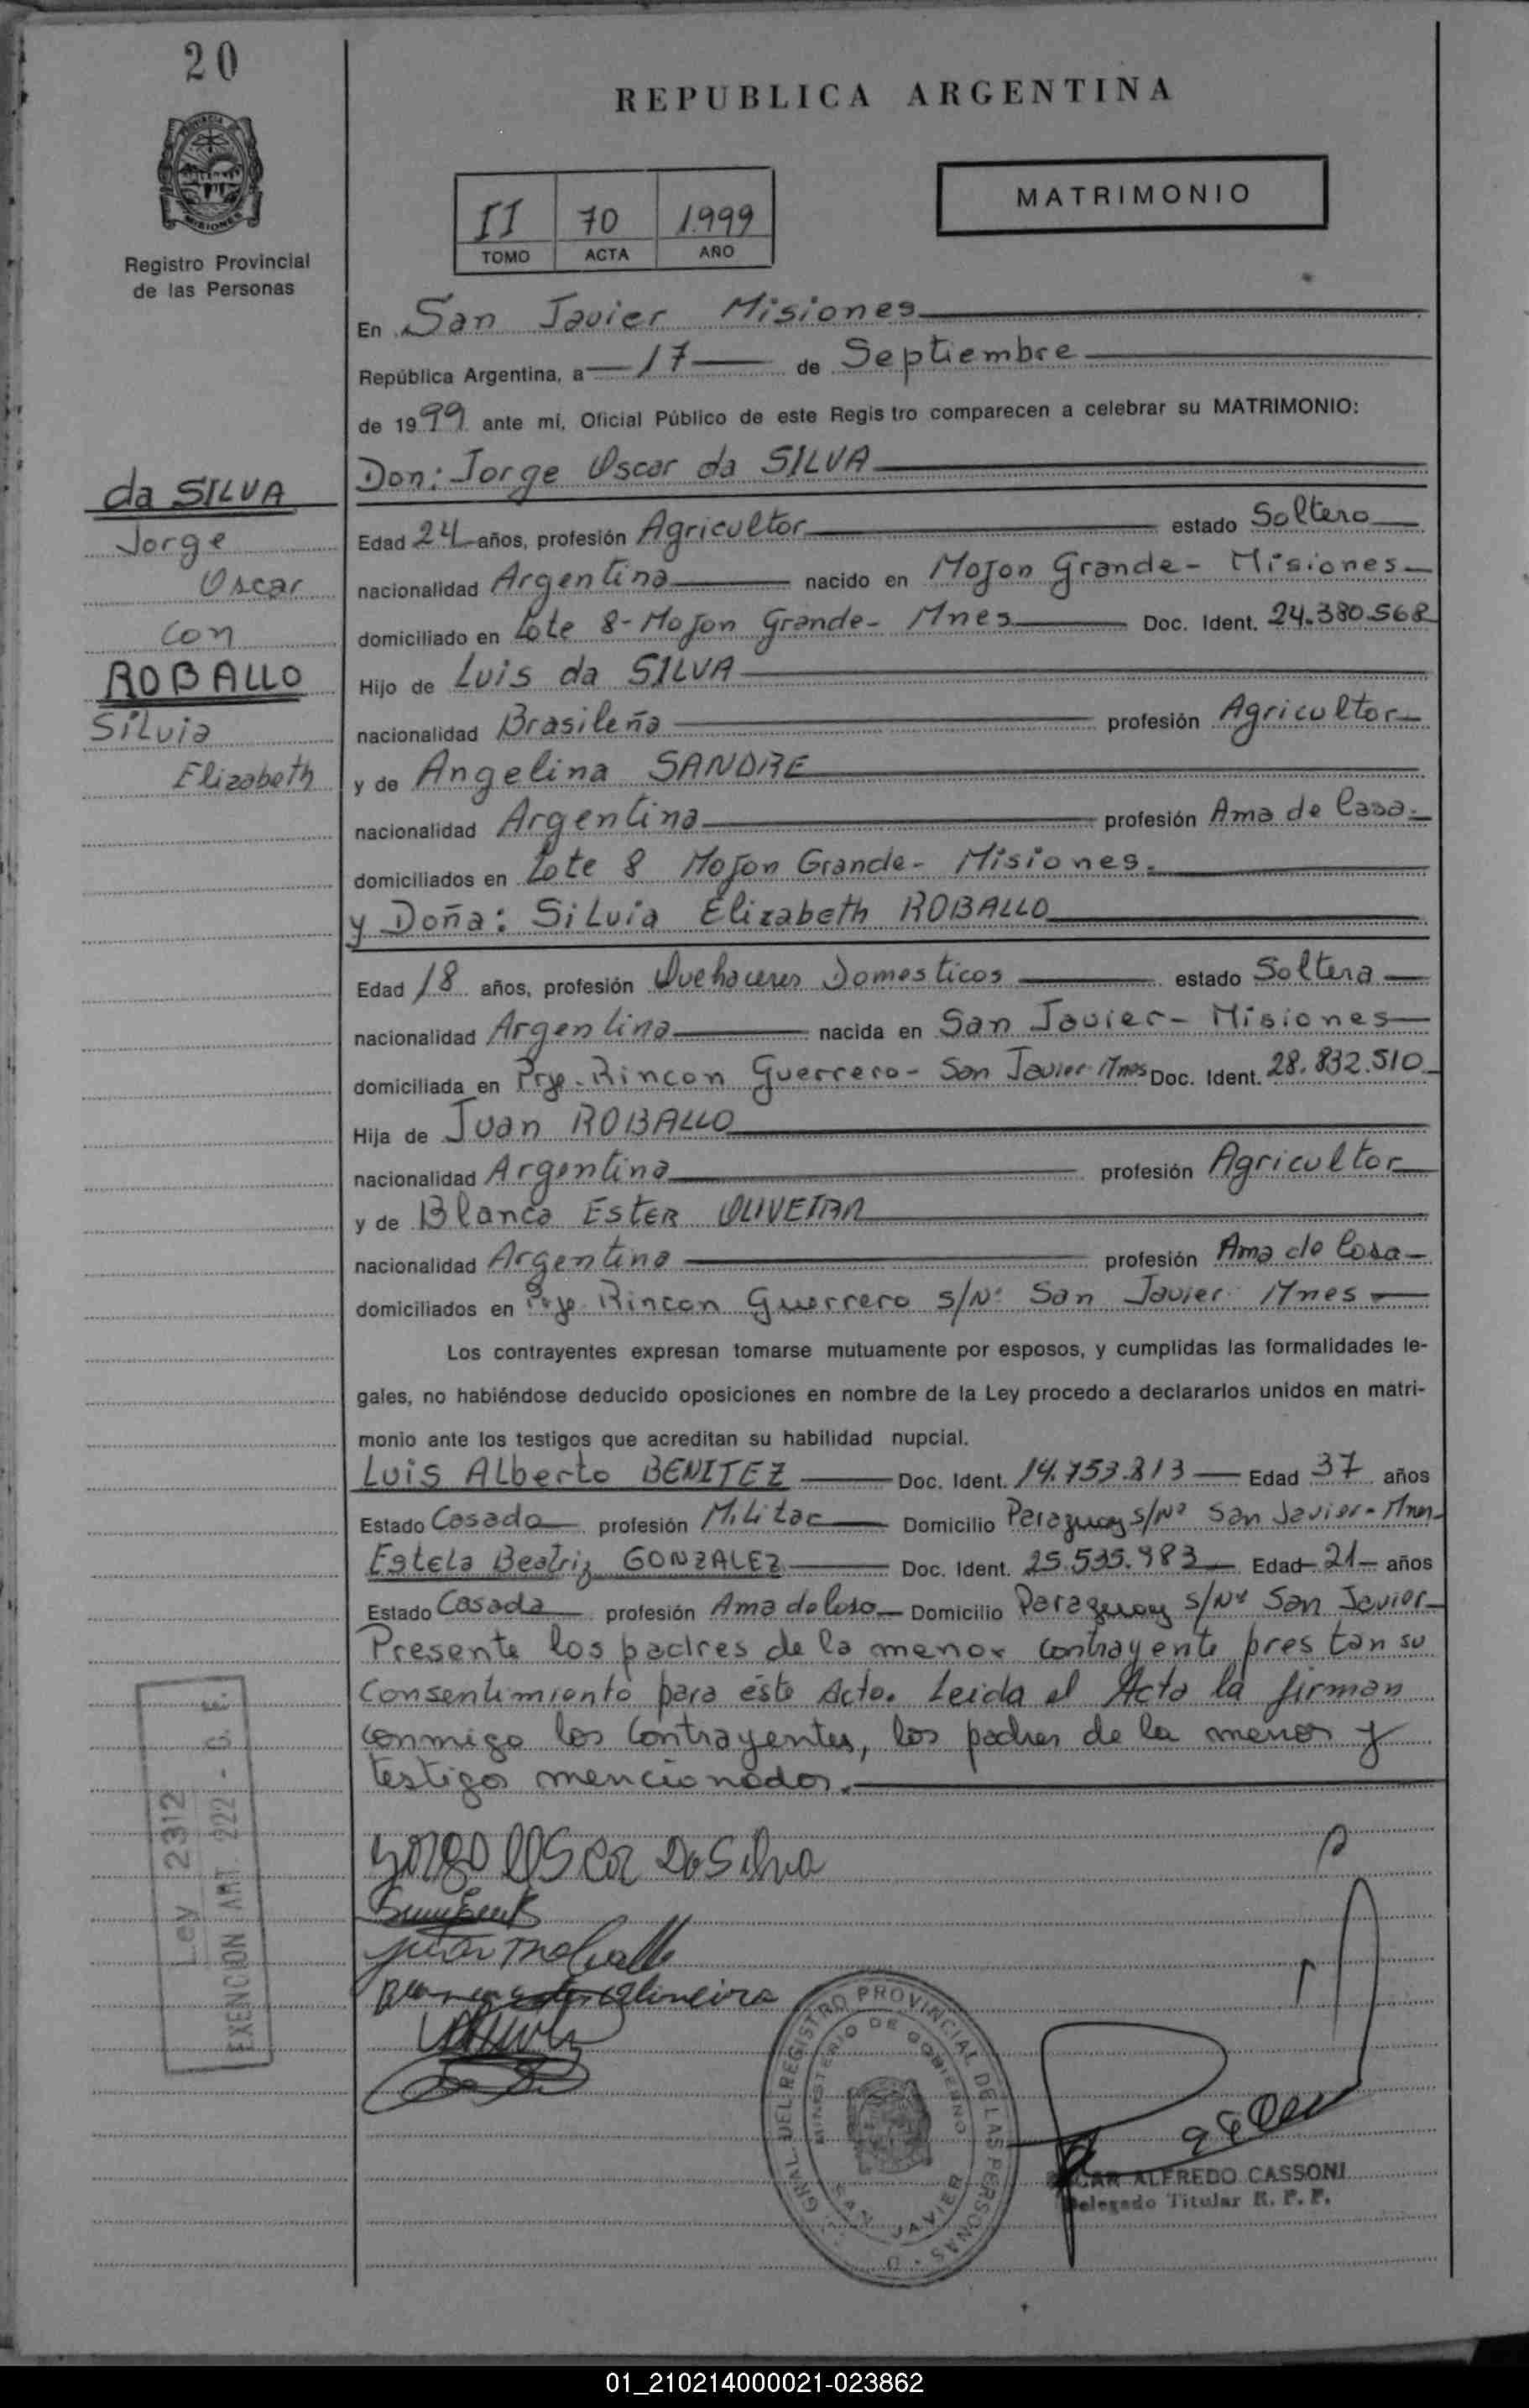 20
REPUBLICA ARGENTINA
MATRIMONIO
II 70 1.999
TOMO ACTA AÑO
PROVINCIA DE
MISIONES
Registro Provincial
de las Personas
En San Javier Misiones
República Argentina, a 17 de Septiembre
de 1999 ante mí, Oficial Público de este Regis tro comparecen a celebrar su MATRIMONIO:
da SILVA
Jorge
Oscar
con
ROBALLO
Silvia
Elizabeth
Don: Jorge Oscar da SILVA
Edad 24 años, profesión Agricultor estado Soltero
nacionalidad Argentina nacido en Mojon Grande - Misiones
domiciliado en Lote 8 - Mojon Grande - Mnes Doc. Ident. 24.380.568
Hijo de Luis da SILVA
nacionalidad Brasileña profesión Agricultor
y de Angelina SANDRE
nacionalidad Argentina profesión Ama de Casa.
domiciliados en Lote 8 Mojon Grande - Misiones.
y Doña: Silvia Elizabeth ROBALLO
Edad 18 años, profesión Quehaceres Domesticos estado Soltera
nacionalidad Argentina nacida en San Javier - Misiones
domiciliada en Pje. Rincon Guerrero - San Javier Mnes Doc. Ident. 28.832.510
Hija de Juan ROBALLO
nacionalidad Argentina profesión Agricultor
y de Blanca Ester OLIVEIRA
nacionalidad Argentina profesión Ama de Casa
domiciliados en Pje Rincon Guerrero s/Nº San Javier Mnes
Los contrayentes expresan tomarse mutuamente por esposos, y cumplidas las formalidades le-
gales, no habiéndose deducido oposiciones en nombre de la Ley procedo a declararlos unidos en matri-
monio ante los testigos que acreditan su habilidad nupcial.
Luis Alberto BENITEZ Doc. Ident. 14.753.813 Edad 37 años
Estado Casado profesión Militar Domicilio Paraguay s/Nº San Javier - Mnes
Estela Beatriz GONZALEZ Doc. Ident. 25.535.983 Edad 21 años
Estado Casada profesión Ama de Casa Domicilio Paraguay s/Nº San Javier
Presente los padres de la menor contrayente prestan su
Consentimiento para éste Acto. Leida el Acta la firman
conmigo los Contrayentes, los padres de la menor y
testigos mencionados.
Ley 2312
EXENCION ART. 222 - C. F.
Jorge Oscar Da Silva
Oliveira
GRAL. DEL REGISTRO PROVINCIAL DE LAS PERSONAS
MINISTERIO DE GOBIERNO
SAN JAVIER
CAR ALFREDO CASSONI
Delegado Titular R. P. P.
01_210214000021-023862